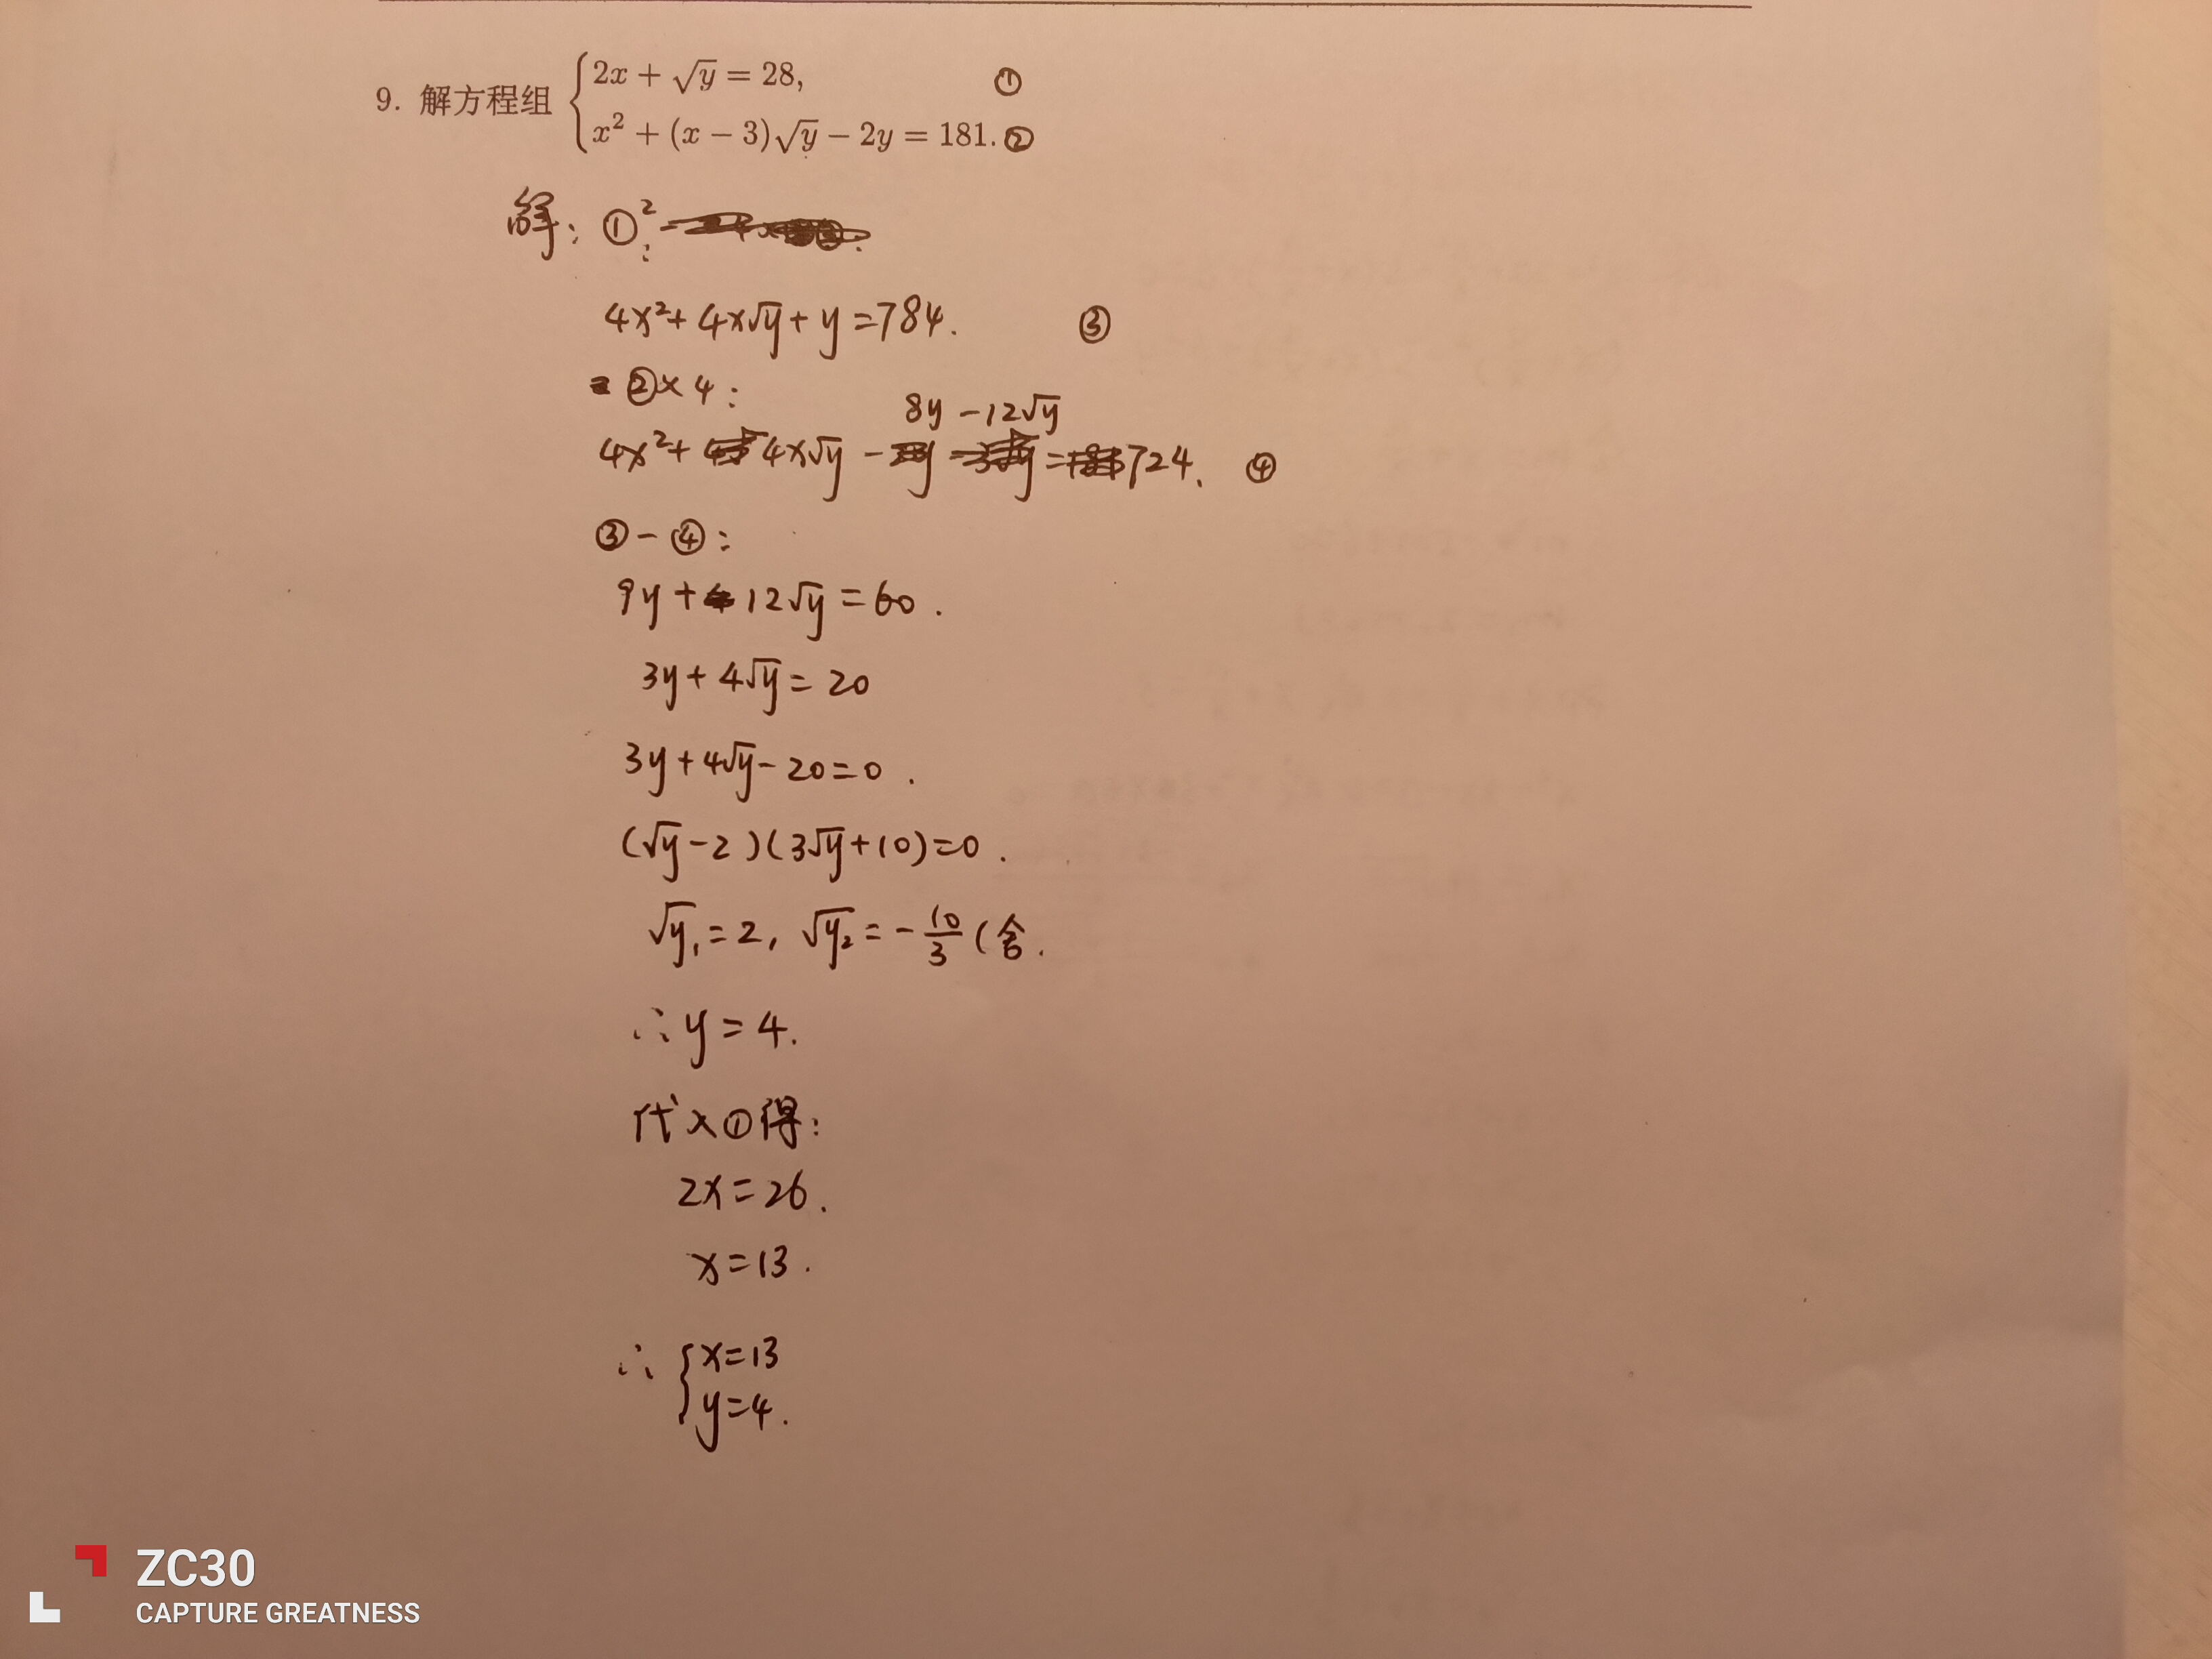 9. 解方程组 {2x + √y = 28, ①
x² + (x − 3)√y − 2y = 181. ②
解: ①²:
4x² + 4x√y + y = 784. ③
②×4:
8y −12√y
4x² + 4x√y − = 724. ④
③−④:
9y + 12√y = 60.
3y + 4√y = 20
3y + 4√y − 20 = 0.
(√y − 2)(3√y + 10) = 0.
√y₁ = 2, √y₂ = −10/3 (舍.
∴ y = 4.
代入①得:
2x = 26.
x = 13.
∴ {x = 13
y = 4.
ZC30
CAPTURE GREATNESS